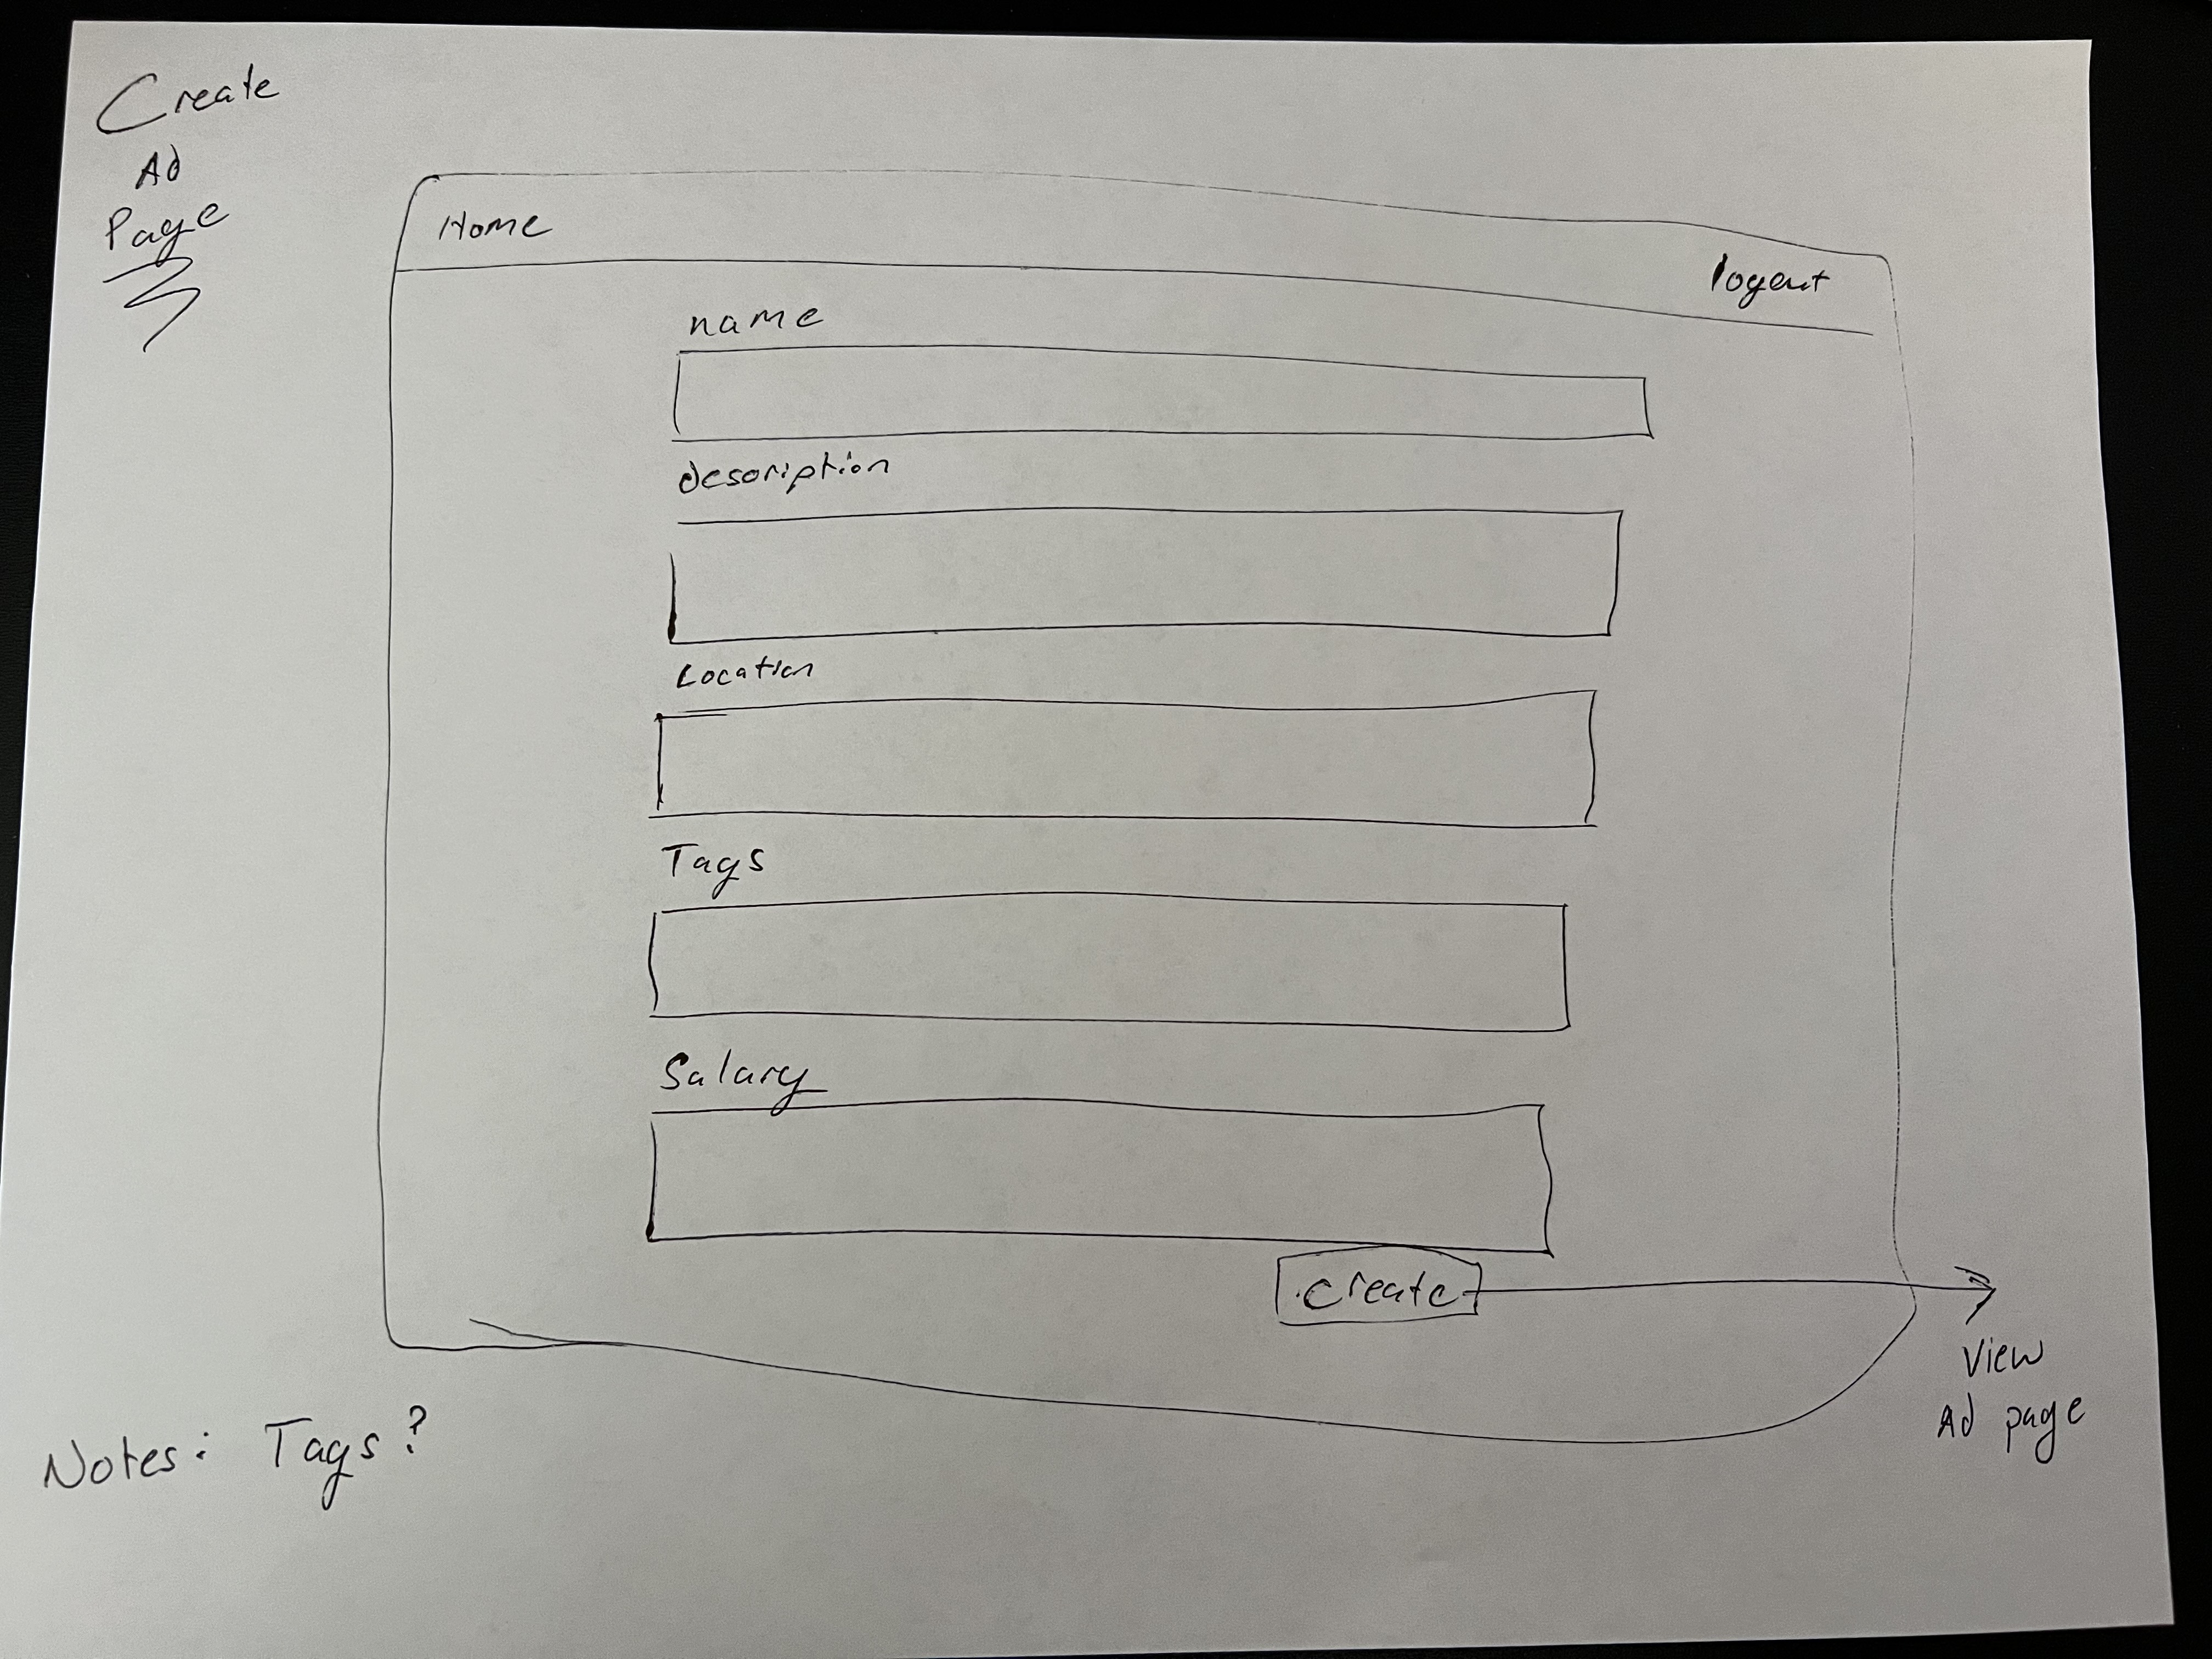 Create
Ad
Page
Home
logout
name
description
Location
Tags
Salary
create
View
Ad page
Notes: Tags?